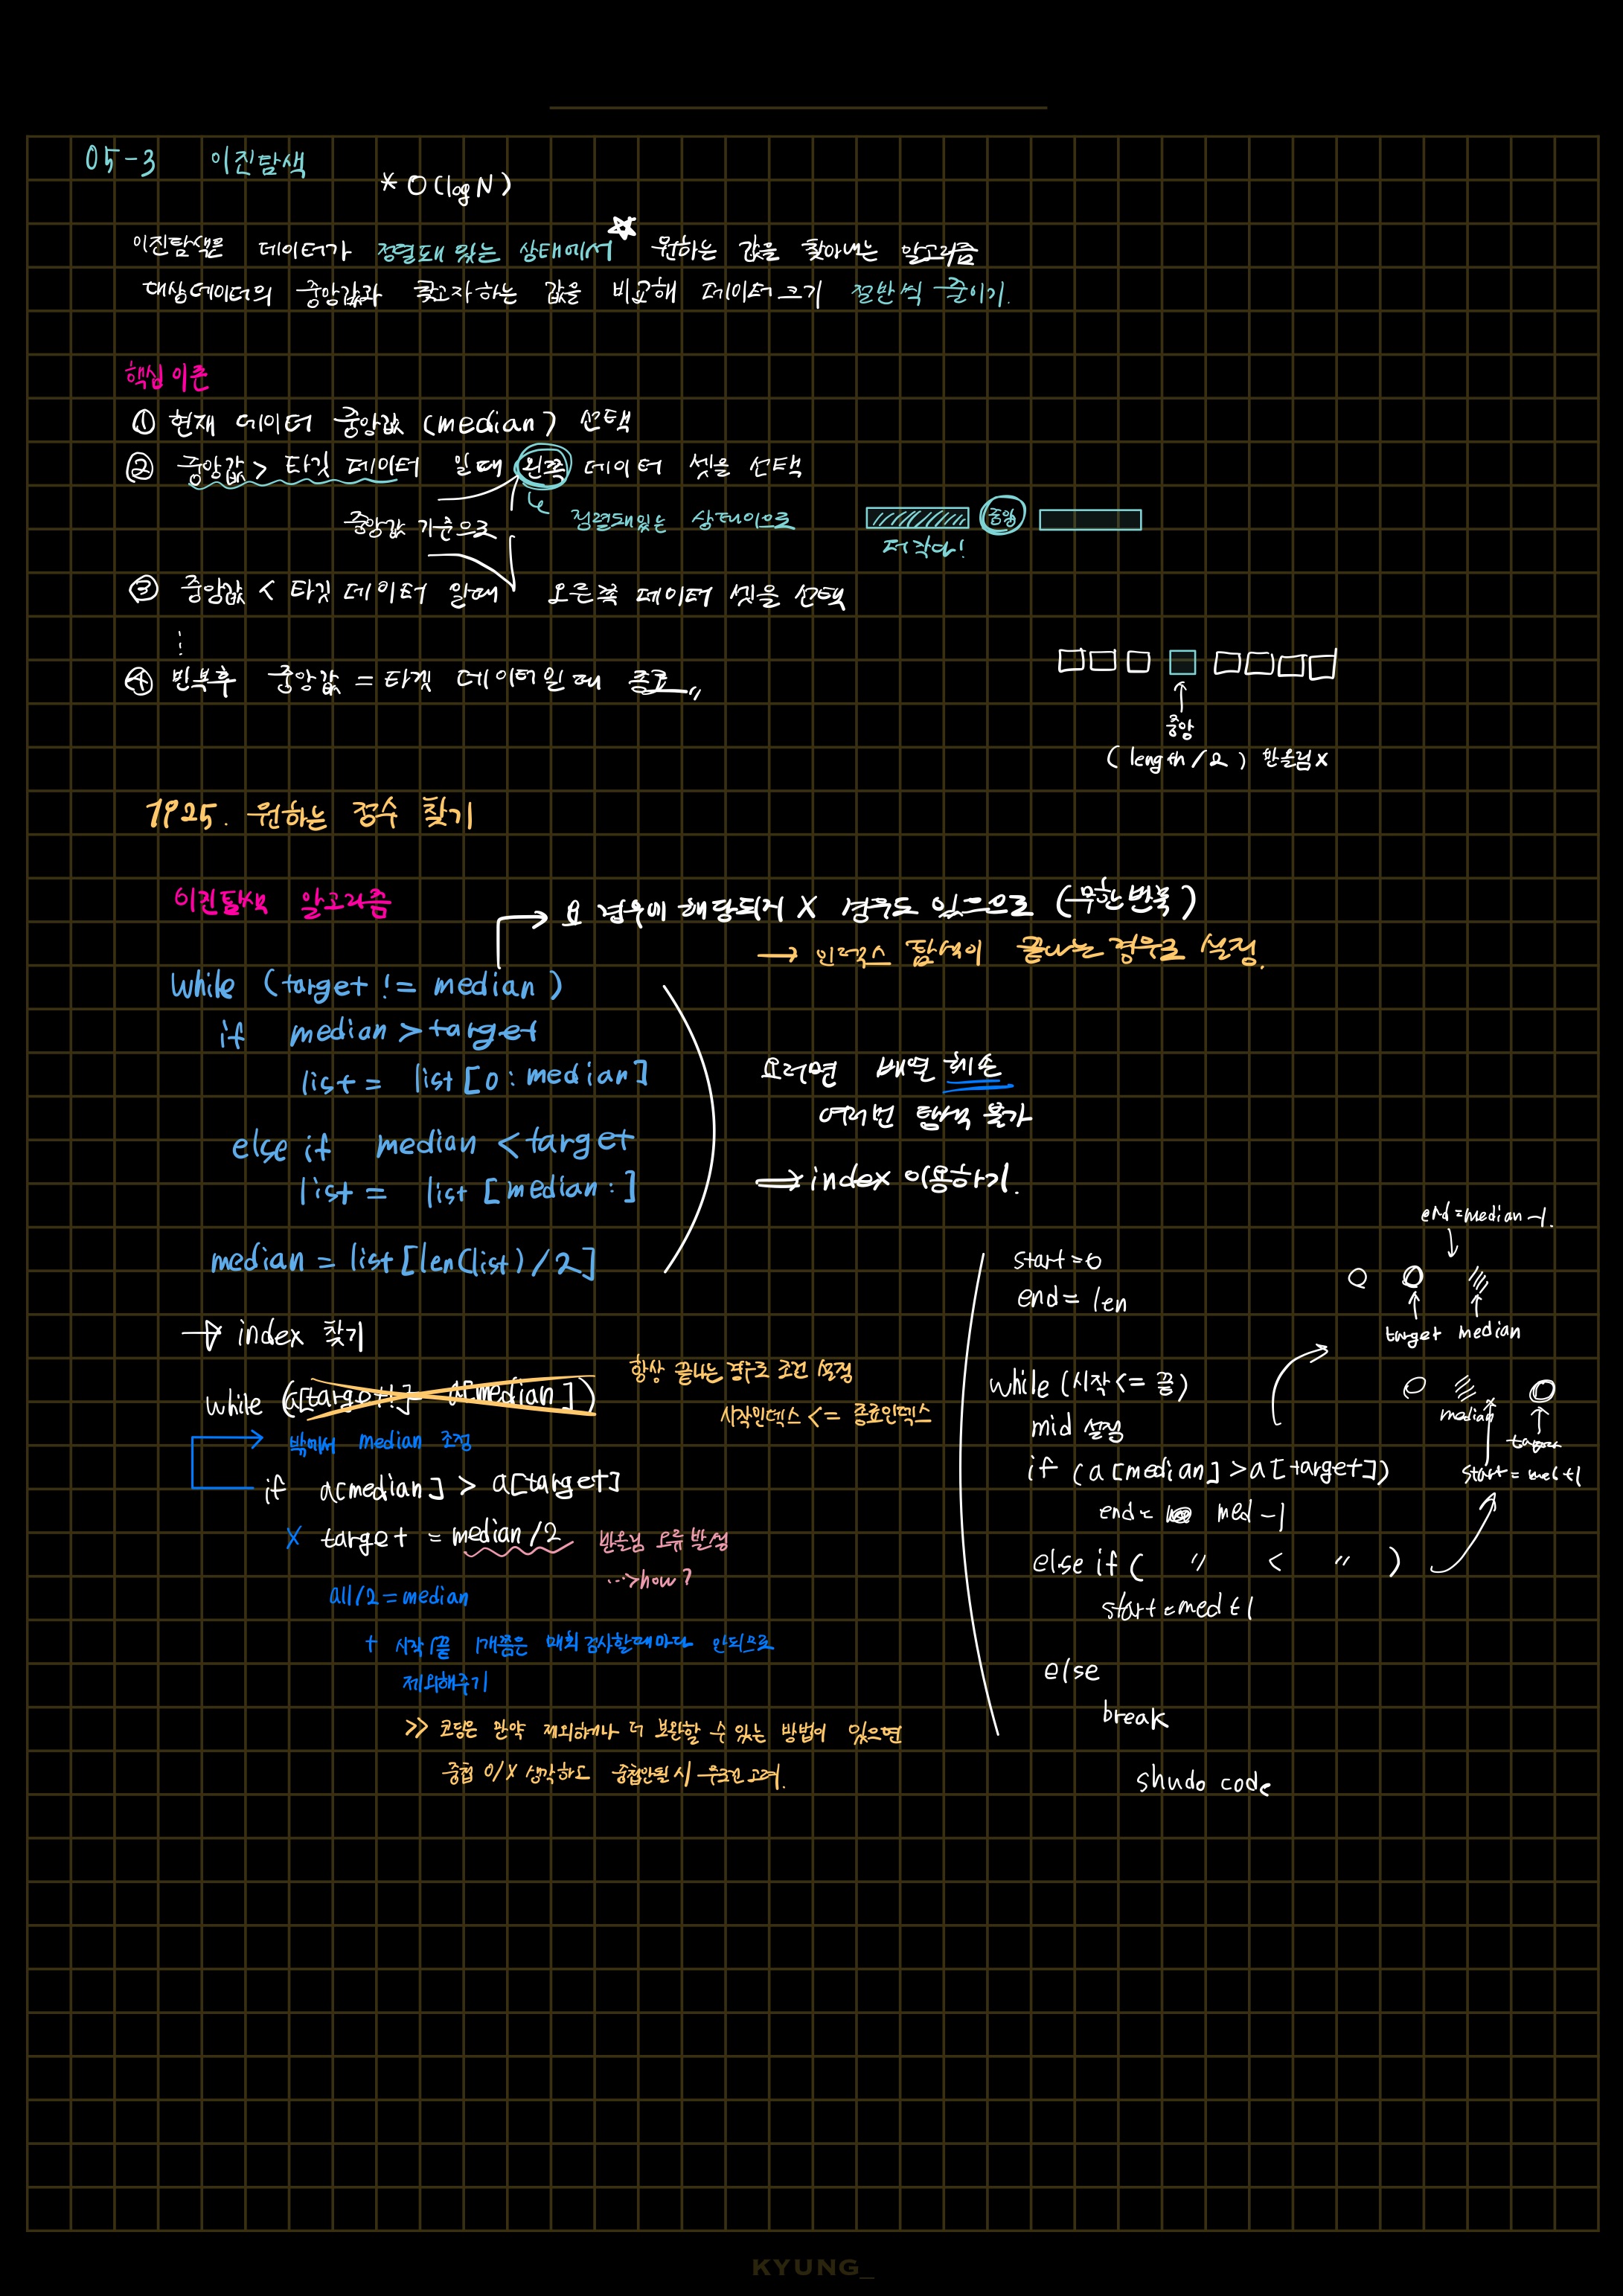 05-3 이진탐색
* O(log N)
이진탐색은 데이터가 정렬돼 있는 상태에서 원하는 값을 찾아내는 알고리즘
대상데이터의 중앙값과 찾고자하는 값을 비교해 데이터크기 절반씩 줄이기.
핵심이론
① 현재 데이터 중앙값 (median) 선택
② 중앙값 > 타깃 데이터 일때 왼쪽 데이터 셋을 선택
중앙값 기준으로
정렬돼있는 상태이므로
중앙
더 작다!
③ 중앙값 < 타깃 데이터 일때 오른쪽 데이터 셋을 선택
④ 반복후 중앙값 = 타겟 데이터일 때 종료
중앙
(length/2) 반올림x
1925. 원하는 정수 찾기
이진탐색 알고리즘
요 경우에 해당되지 X 경우도 있으므로 (무한번복)
→ 인덱스 탐색이 끝나는 경우로 설정.
while (target != median)
if median > target
list = list[0:median]
else if median < target
list = list[median:]
median = list[len(list)/2]
요러면 배열 훼손
여러번 탐색 불가
⇒ index 이용하기.
→ index 찾기
while (a[target!] a[median])
항상 끝나는 경우로 조건 설정
시작인덱스 <= 종료인덱스
밖에서 median 조정
if a[median] > a[target]
X target = median/2
반올림 오류 발생
…>how?
all/2 = median
+ 시작/끝 1개쯤은 매회 검사할때마다 안되므로
제외해주기
>> 코딩은 만약 제외하거나 더 보완할 수 있는 방법이 있으면
중첩 O/X 생각하고 중첩안될 시 무조건 고려.
start = 0
end = len
while (시작 <= 끝)
mid 설정
if (a[median] > a[target])
end = med -1
else if ( 〃 < 〃 )
start = med +1
else
break
shudo code
end = median -1.
target median
median
start = med +1
KYUNG_